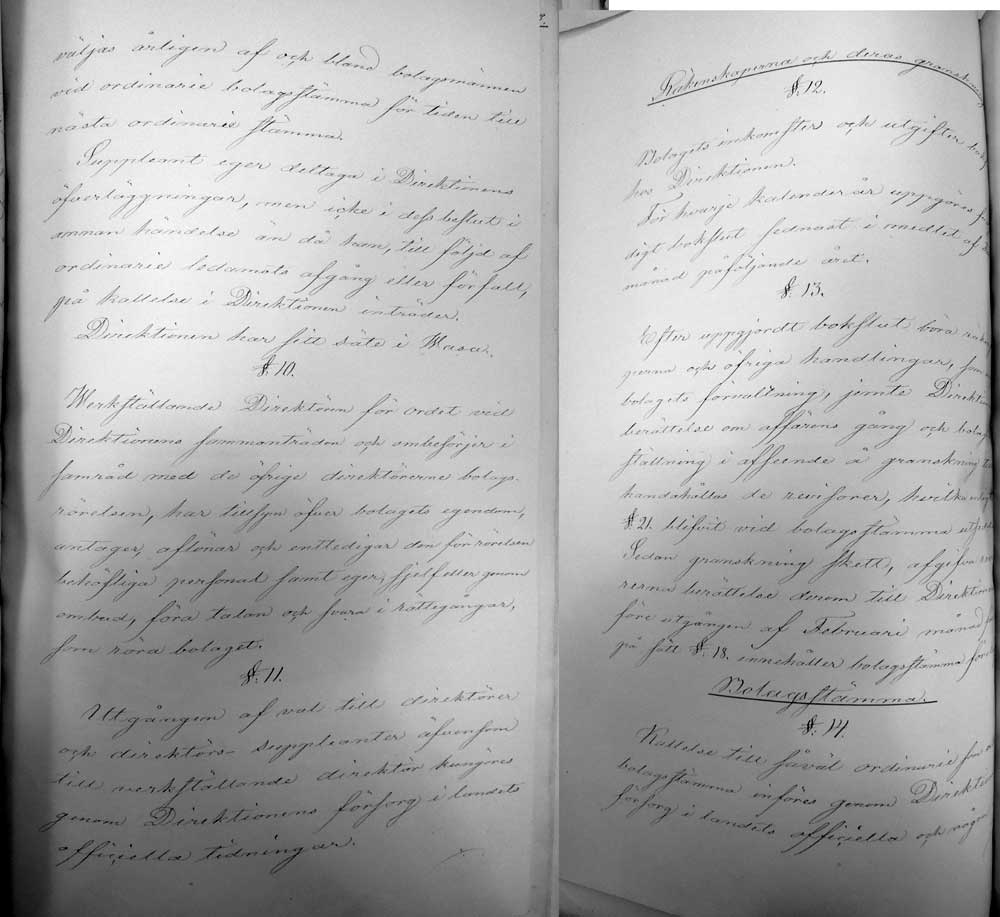 7.
väljas årligen af och bland bolagsmännen
vid ordinarie bolagsstämma för tiden till
nästa ordinarie stämma.
Suppleant eger deltaga i Direktionens
öfverläggningar, men icke i dess beslut i
annan händelse än då han, till följd af
ordinarie ledamots afgång eller förfall,
på kallelse i Direktionen inträder.
Direktionen har sitt säte i Wasa.
§. 10.
Werkställande Direktören för ordet vid
Direktionens sammanträden och ombesörjer i
samråd med de öfrige direktörerne bolags-
rörelsen, har tillsyn öfver bolagets egendom,
antager, aflönar och entledigar den för rörelsen
behöfliga personal samt eger, sjelf eller genom
ombud, föra talan och svara i rättegångar,
som röra bolaget.
§. 11.
Utgången af val till direktörer
och direktörs-suppleanter äfvensom
till verkställande direktör kungöres
genom Direktionens försorg i landets
officiella tidningar.
Räkenskaperna och deras granskning
§. 12.
Bolagets inkomster och utgifter bok
hos Direktionen.
För hvarje kalenderår uppgöres
digt bokslut sednast i medlet af
månad påföljande året.
§. 13.
Efter uppgjordt bokslut böra räken
perna och öfriga handlingar, som
bolagets förvaltning, jemte Direktion
berättelse om affärens gång och bola
ställning i afseende å granskning
handahållas de revisorer, hvilka
§ 21. blifvit vid bolagsstämma utse
Sedan granskning skett, afgifva
rerna berättelse derom till Direktion
före utgången af Februari månad
på sätt §. 18. innehåller bolagsstämma före
Bolagsstämma.
§. 14.
Kallelse till såväl ordinarie som
bolagsstämma införes genom Direktio
försorg i landets officiella och några